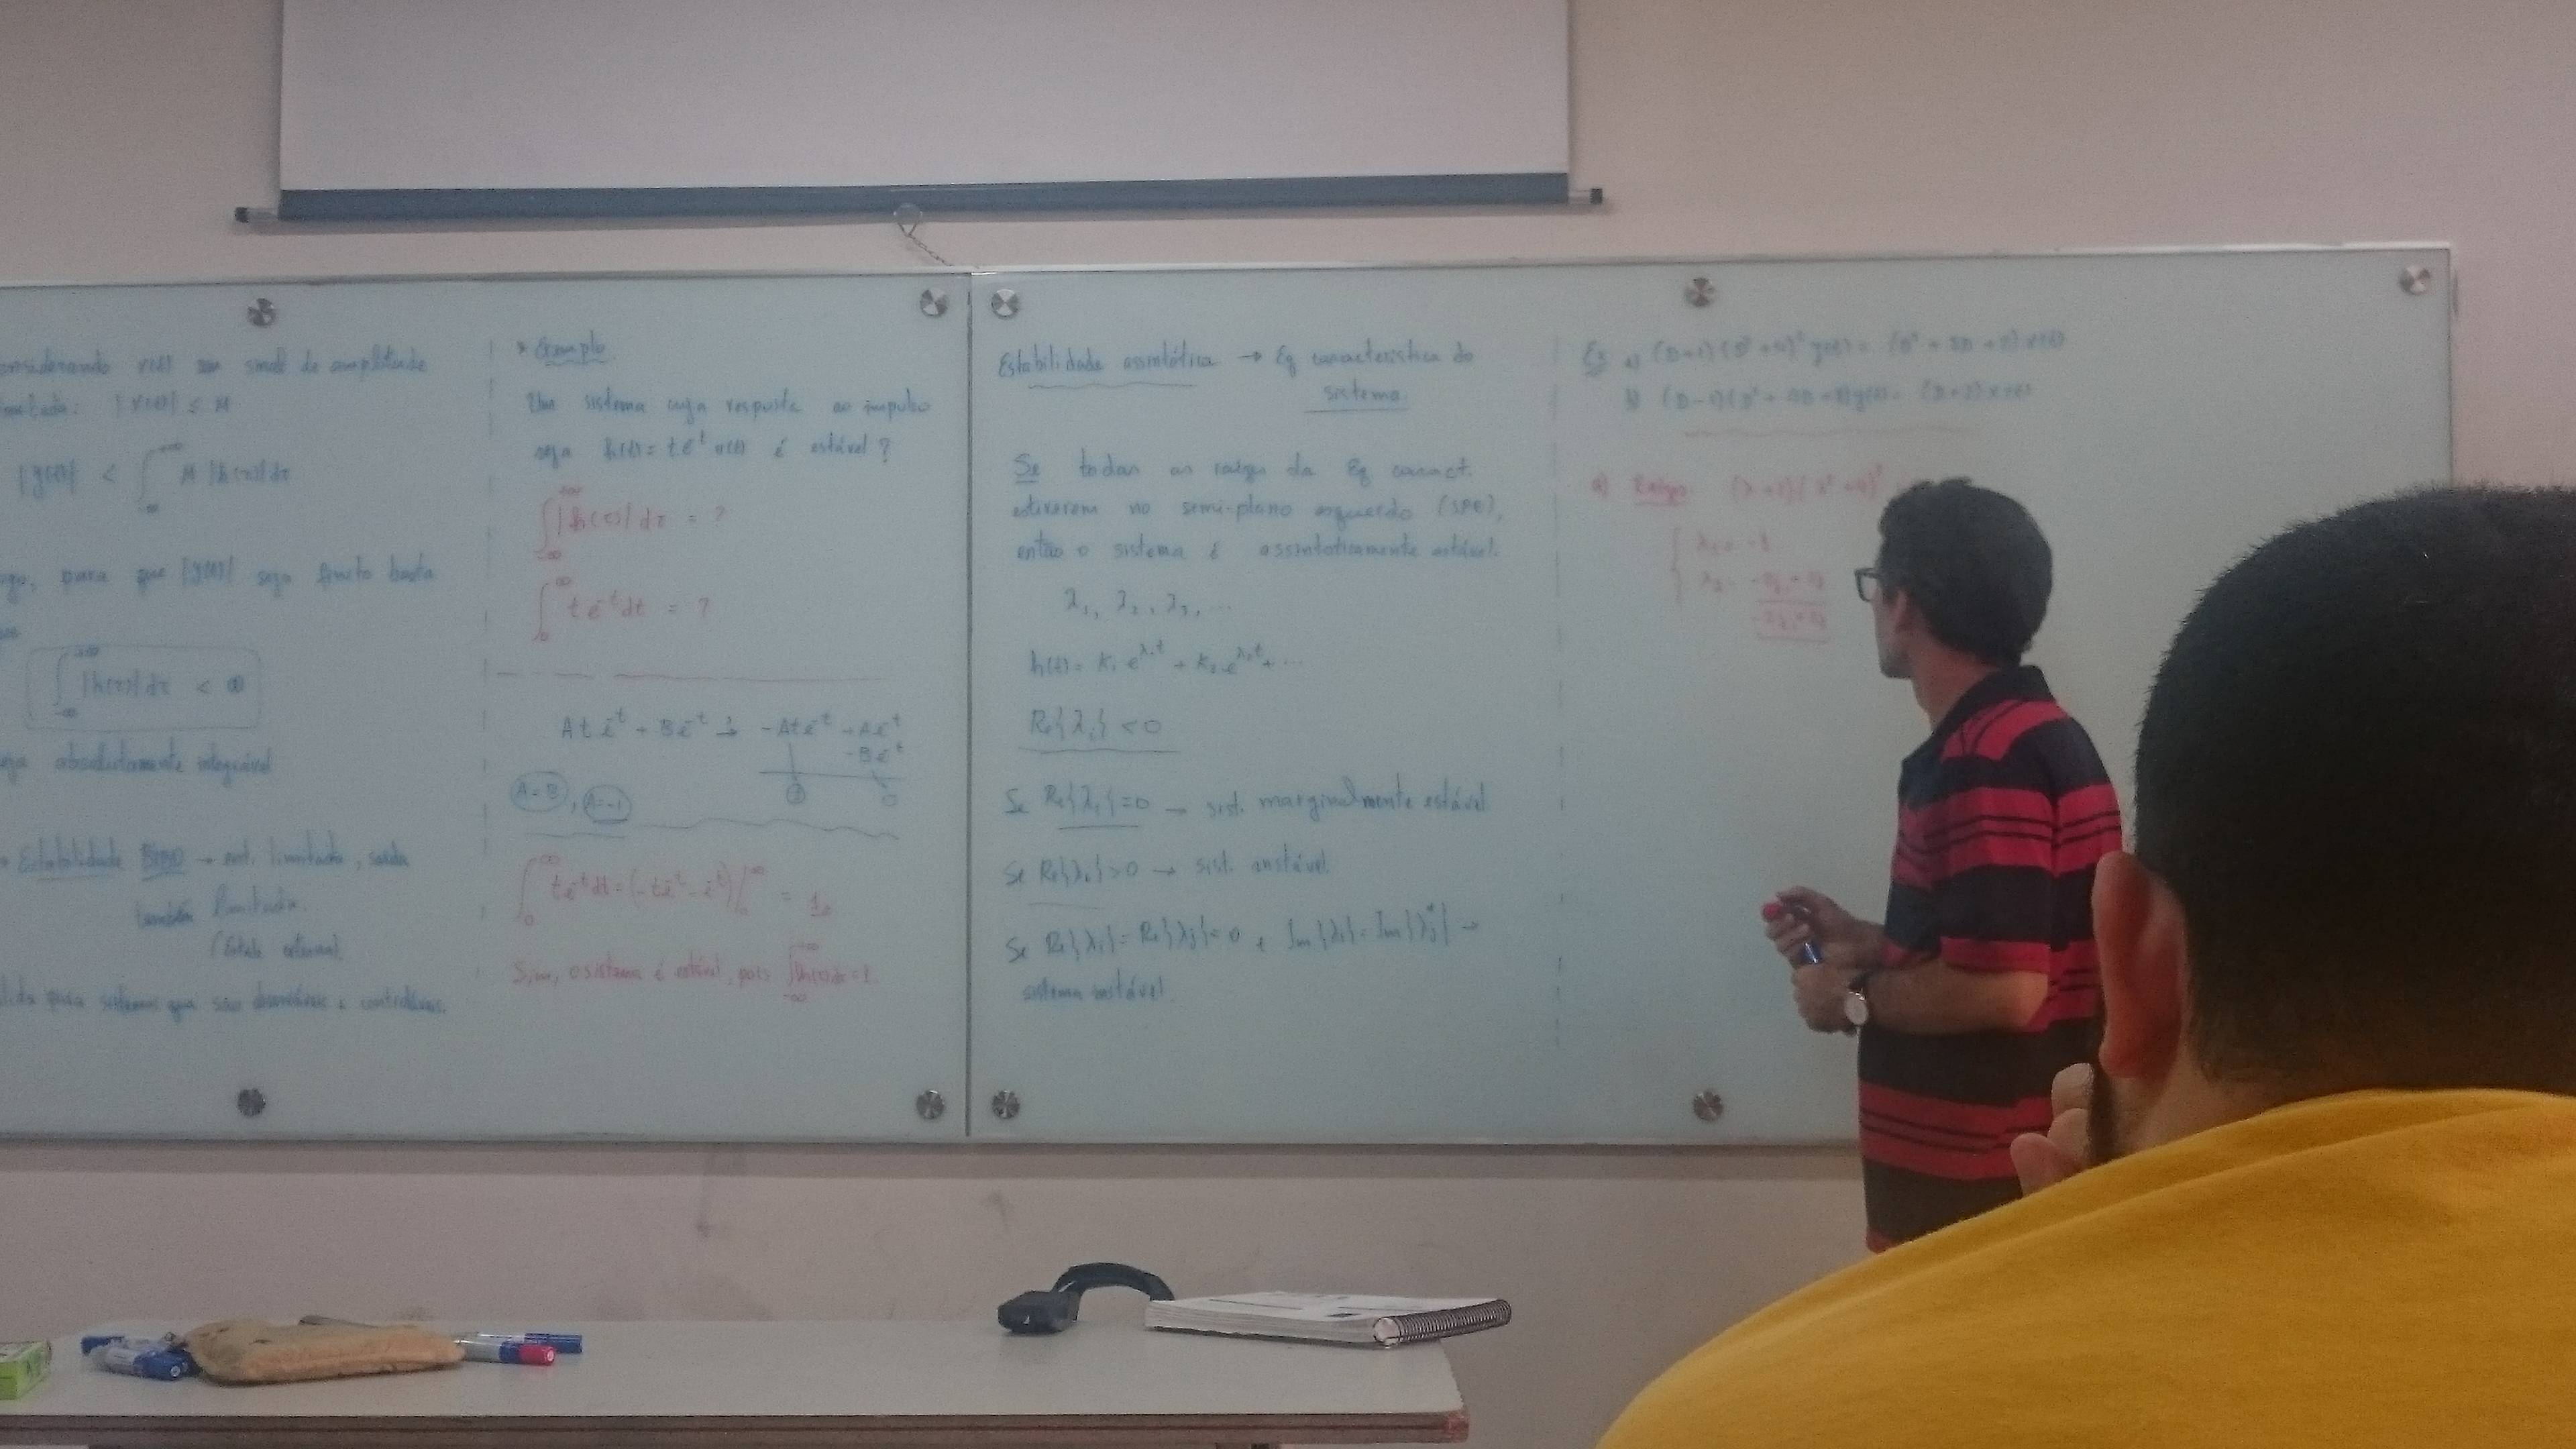 onsiderando x(t) um sinal de amplitude
mitada: |x(t)| ≤ M
|y(t)| < ∫_{-∞}^{+∞} M |h(τ)| dτ
ogo, para que |y(t)| seja finito basta
∫_{-∞}^{+∞} |h(τ)| dτ < ∞
eja absolutamente integrável
→ Estabilidade BIBO → ent. limitada, saída
também limitada.
(Estab. externa)
lida para sistemas que são observáveis e controláveis.
Exemplo
Um sistema cuja resposta ao impulso
seja h(t) = t e^{-t} u(t) é estável?
∫_{-∞}^{+∞} |h(τ)| dτ = ?
∫_0^∞ t e^{-t} dt = ?
A t e^{-t} + B e^{-t} → -A t e^{-t} + A e^{-t}
- B e^{-t}
A=B, A=-1
∫_0^∞ t e^{-t} dt = (-t e^{-t} - e^{-t}) |_0^∞ = 1
Sim, o sistema é estável, pois ∫_{-∞}^{+∞} |h(τ)| dτ = 1.
Estabilidade assintótica → Eq característica do
sistema
Se todas as raízes da Eq caract.
estiverem no semi-plano esquerdo (SPE),
então o sistema é assintoticamente estável.
λ₁, λ₂, λ₃, ...
h(t) = K₁ e^{λ₁t} + K₂ e^{λ₂t} + ...
Re{λᵢ} < 0
Se Re{λᵢ} = 0 → sist. marginalmente estável
Se Re{λᵢ} > 0 → sist. instável
Se Re{λᵢ} = Re{λⱼ} = 0 e Im{λᵢ} = Im{λⱼ*} →
sistema instável
Ex a) (D+1)(D²+4)² y(t) = (D²+2D+8) x(t)
b) (D-1)(D²+4D+8) y(t) = (D+2) x(t)
a) Raízes: (λ+1)(λ²+4)²
λ₁ = -1